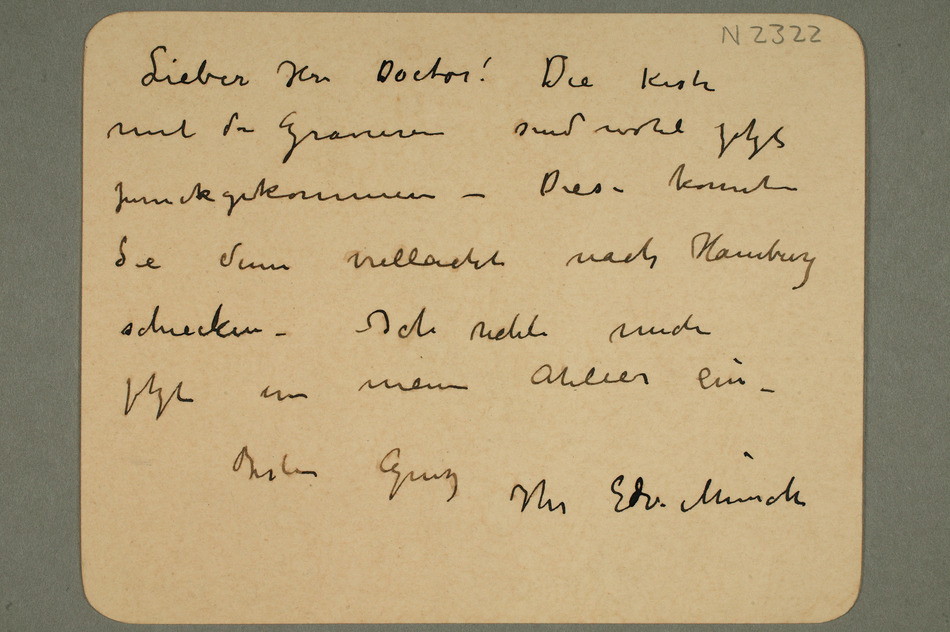 N 2322
Lieber Herr Doctor! Die Kiste
mit den Gravuren sind wohl jetzt
zurückgekommen – Diese konnten
Sie denn vielleicht nach Hamburg
schicken – Ich richte mich
jetzt in mein Atelier ein –
Besten Gruß
Ihr Edv. Munch